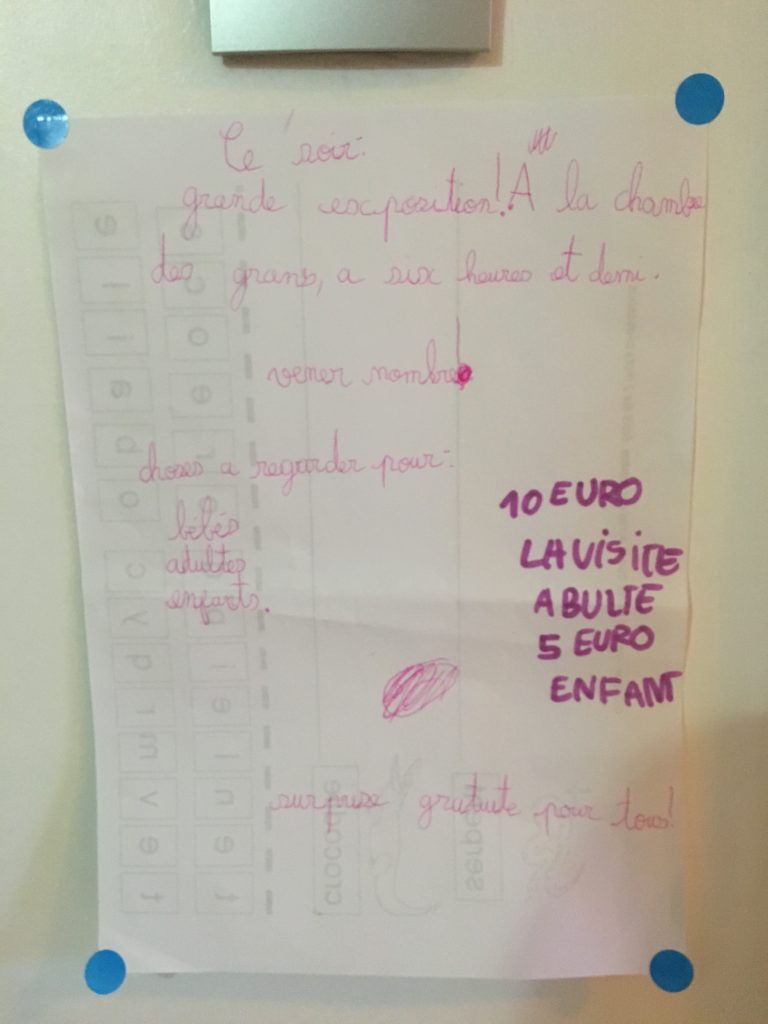 Ce soir:
grande exposition! A la chambre
des grans, a six heures et demi.
vener nombre!
choses a regarder pour:
bébés
adultes
enfants.
10 EURO
LA VISITE
ABULTE
5 EURO
ENFANT
surprise gratuite pour tous!
crocodile
serpent